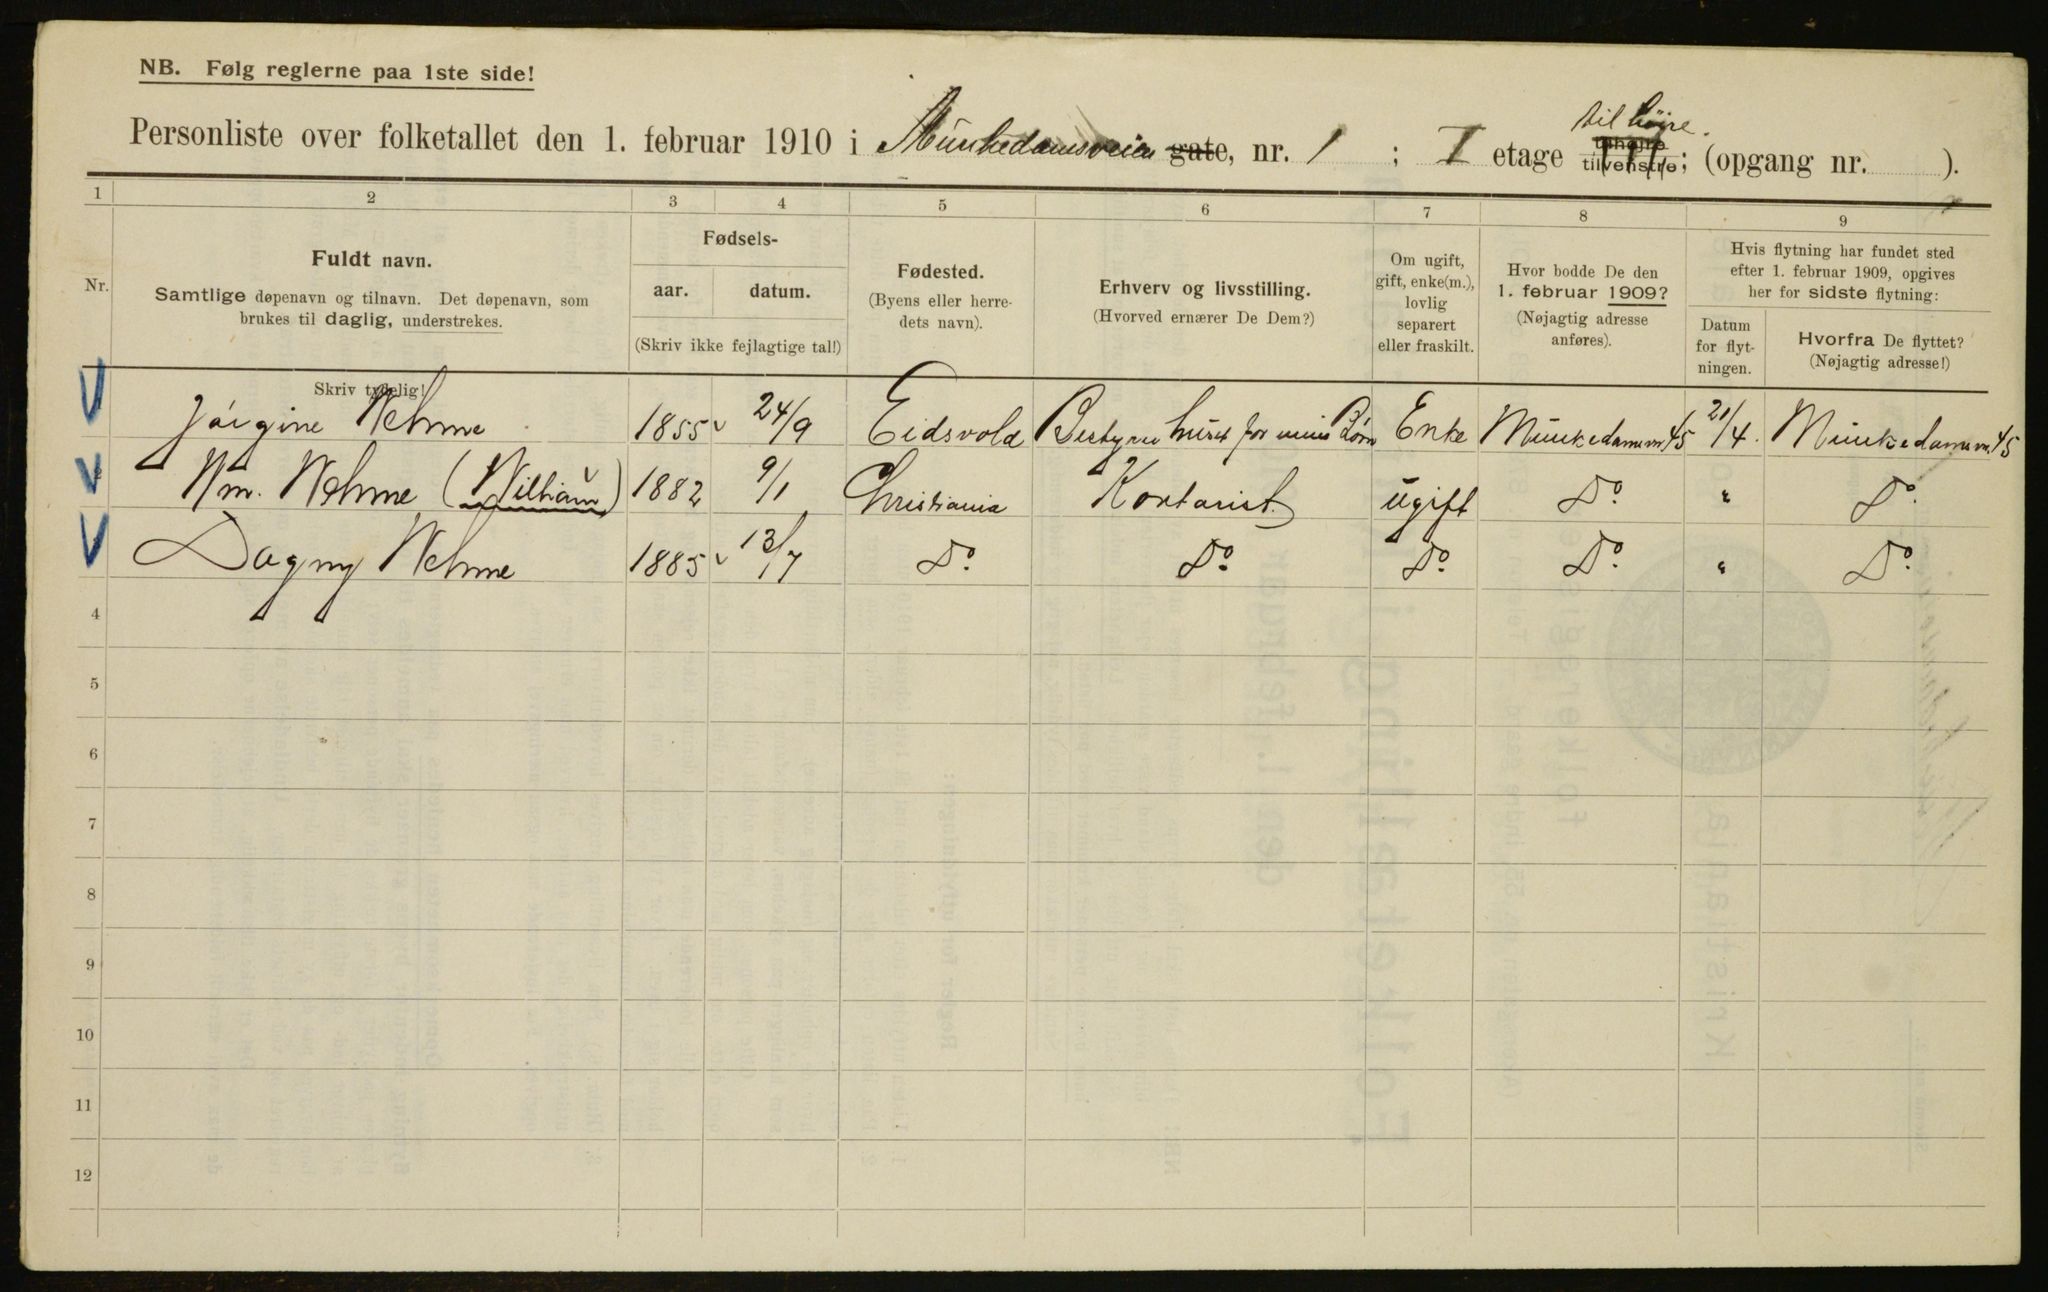 NB. Følg reglerne paa 1ste side!
til høire.
Personliste over folketallet den 1. februar 1910 i Munkedamsveien gate, nr. 1 ; I etage tilhøire tilvenstre; (opgang nr. ).
1 2 3 4 5 6 7 8 9
Nr.
Fuldt navn.
Samtlige døpenavn og tilnavn. Det døpenavn, som
brukes til daglig, understrekes.
Skriv tydelig!
Fødsels-
aar. datum.
(Skriv ikke fejlagtige tal!)
Fødested.
(Byens eller herre-
dets navn).
Erhverv og livsstilling.
(Hvorved ernærer De Dem?)
Om ugift,
gift, enke(m.),
lovlig
separert
eller fraskilt.
Hvor bodde De den
1. februar 1909?
(Nøjagtig adresse
anføres).
Hvis flytning har fundet sted
efter 1. februar 1909, opgives
her for sidste flytning:
Datum
for flyt-
ningen.
Hvorfra De flyttet?
(Nøjagtig adresse!)
Jörgine Wehme 1855 24/9 Eidsvold Bestyrer huset for mine Börn Enke Munkedamsvn 45 21/4. Munkedamsvn. 45
Wm. Wehme (William) 1882 9/1 Christiania Kontorist. ugift Do. " Do.
Dagny Wehme 1885 13/7 Do. Do. Do. Do. " Do.
4
5
6
7
8
9
10
11
12